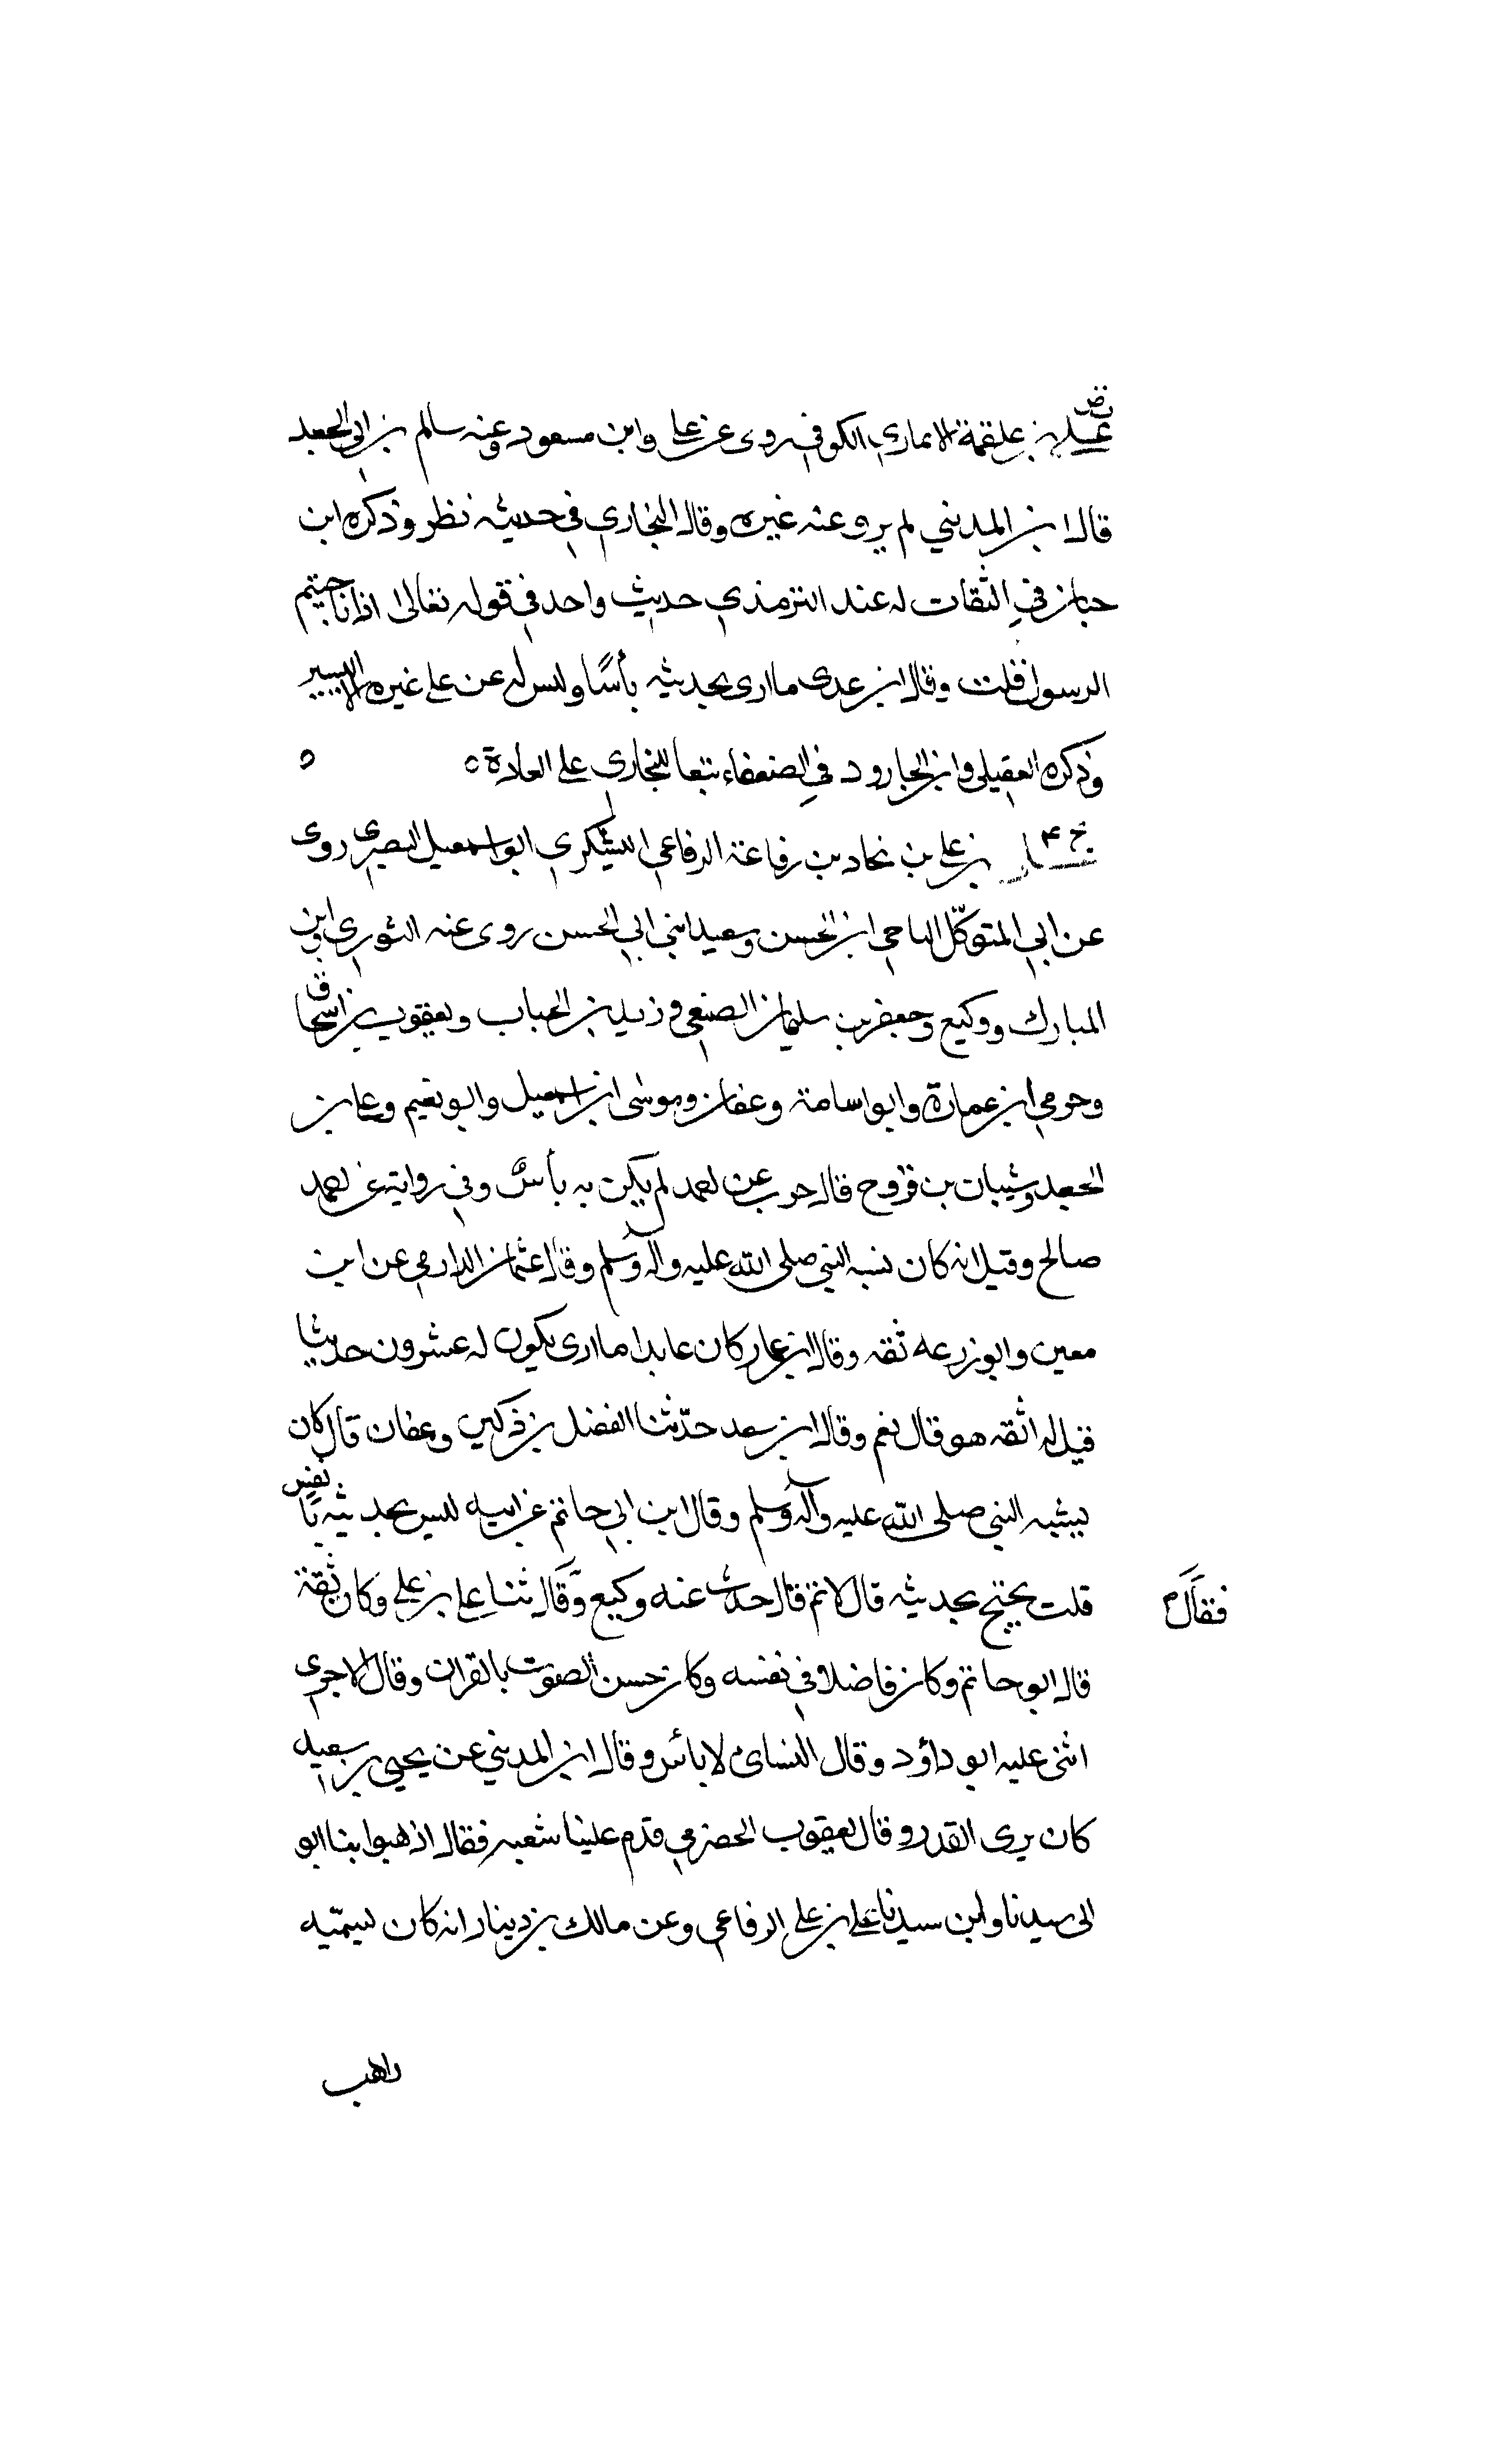 ت ص
علي بن علقمة الانماري الكوفي روى عن علي وابن مسعود وعنه سالم بن ابي الجعد
قال ابن المديني لم يرو عنه غيره وقال البخاري في حديثه نظر وذكره ابن
حبان في الثقات له عند الترمذي حديث واحد في قوله تعالى اذا ناجيتم
الرسول قلت وقال ابن عدى ما ارى بحديثه بأسًا وليس له عن علي غيره الا اليسير
وذكره العقيلي وابن الجارود في الضعفاء تبعا للبخاري على العادة ه ه
بخ ۴
علي بن علي بن نجاد بن رفاعة الرفاعي اليشكري ابو اسمعيل البصرى روى
عن ابي المتوكّل الناجي ابن الحسن وسعيد ابني ابي الحسن روى عنه الثوري وابن
المبارك ووكيع وجعفر بن سليمان الضبعي وزيد بن الحباب ويعقوب بن اسحاق
وحرمي ابن عمارة وابو اسامة وعفان وموسى ابن اسمعيل وابو نعيم وعلي بن
الجعد وشيبان بن فروح قال حرب عن احمد لم يكن به بأسٌ وفي رواية عن احمد
صالح وقيل انه كان يشبه النبي صلى الله عليه وآله وسلم وقال عثمان الدارمي عن ابن
معين وابو زرعه ثقه وقال ابن عمار كان عابدا ما ارى يكون له عشرون حديثا
قيل له اثقه هو قال نعم وقال ابن سعد حدّثنا الفضل بن ذكين وعفان قال كان
يشبه النبي صلى الله عليه وآله وسلم وقال ابن ابي حاتم عن ابيه ليس بحديثه بأس
قلت يحتج بحديثه قال لا ثم قال حدث عنه وكيع وقال ثنا علي بن علي وكان ثقة
فقال
قال ابو حاتم وكان فاضلا في نفسه وكان حسن الصوت بالقران وقال الاجري
اثنى عليه ابو داؤد وقال النساى لا بأس وقال ابن المديني عن يحيى بن سعيد
كان يرى القدر وقال يعقوب الحضرمي قدم علينا شعبه فقال اذهبوا بنا ابو
الى سيدنا وابن سيدنا علي بن علي الرفاعي وعن مالك بن دينار انه كان يسميّه
راهب